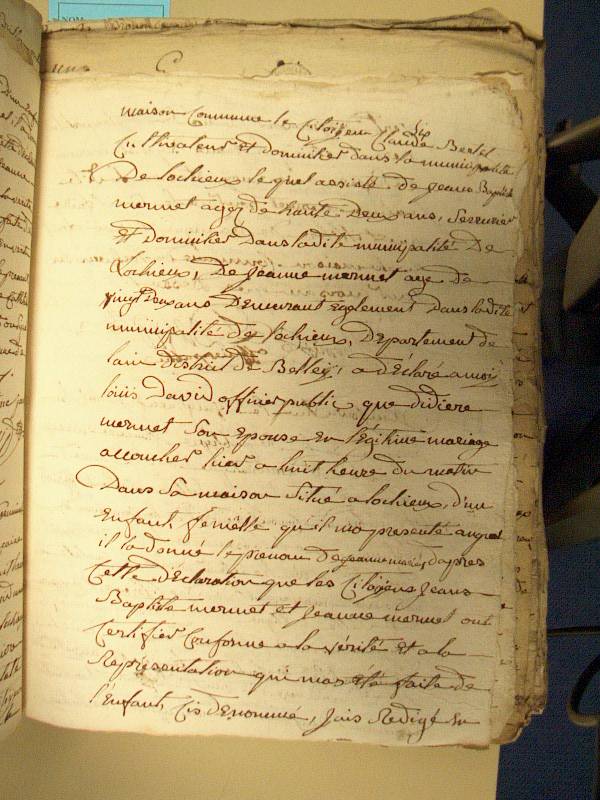 NOM
maison Commune le Citoyen Claude Berlet
Cultivateur Et domicilier dans la municipalité
De Lochieux le quel assisté de jean Baptiste
mermet agez de trante Deux ans, Serrurier
Et Domicilier Dans la dite municipalité De
Lochieux, De jeanne mermet age de
vingt Deux ans Demeurant Egalement Dans la dite
municipalité de Lochieux, Departement de
lain district de Belley, a déclaré a moi
loüis David officier public, que didiere
mermet Son Epouse En légitime mariage
accoucher hier a huit heure du matin
Dans Sa maison Situé a lochieux, d'un
Enfant femélle qu'il ma presenté auquel
il la donné le prenom De jeanne marie, dapres
Cette déclaration que les Citoyens Jean
Baptiste mermet et Jeanne mermet ont
Certifier Conforme a la vérité Et a la
Representation qui mas été faite de
l'Enfant Cis dénommé, Jais Redigé En